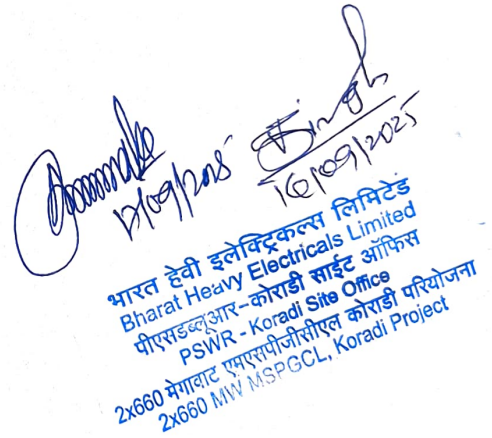 Singh
16/09/2025
भारत हेवी इलेक्ट्रिकल्स लिमिटेड
Bharat Heavy Electricals Limited
पीएसडब्लूआर-कोराडी साईट ऑफिस
PSWR - Koradi Site Office
2x660 मेगावाट एमएसपीजीसीएल कोराडी परियोजना
2x660 MW MSPGCL, Koradi Project